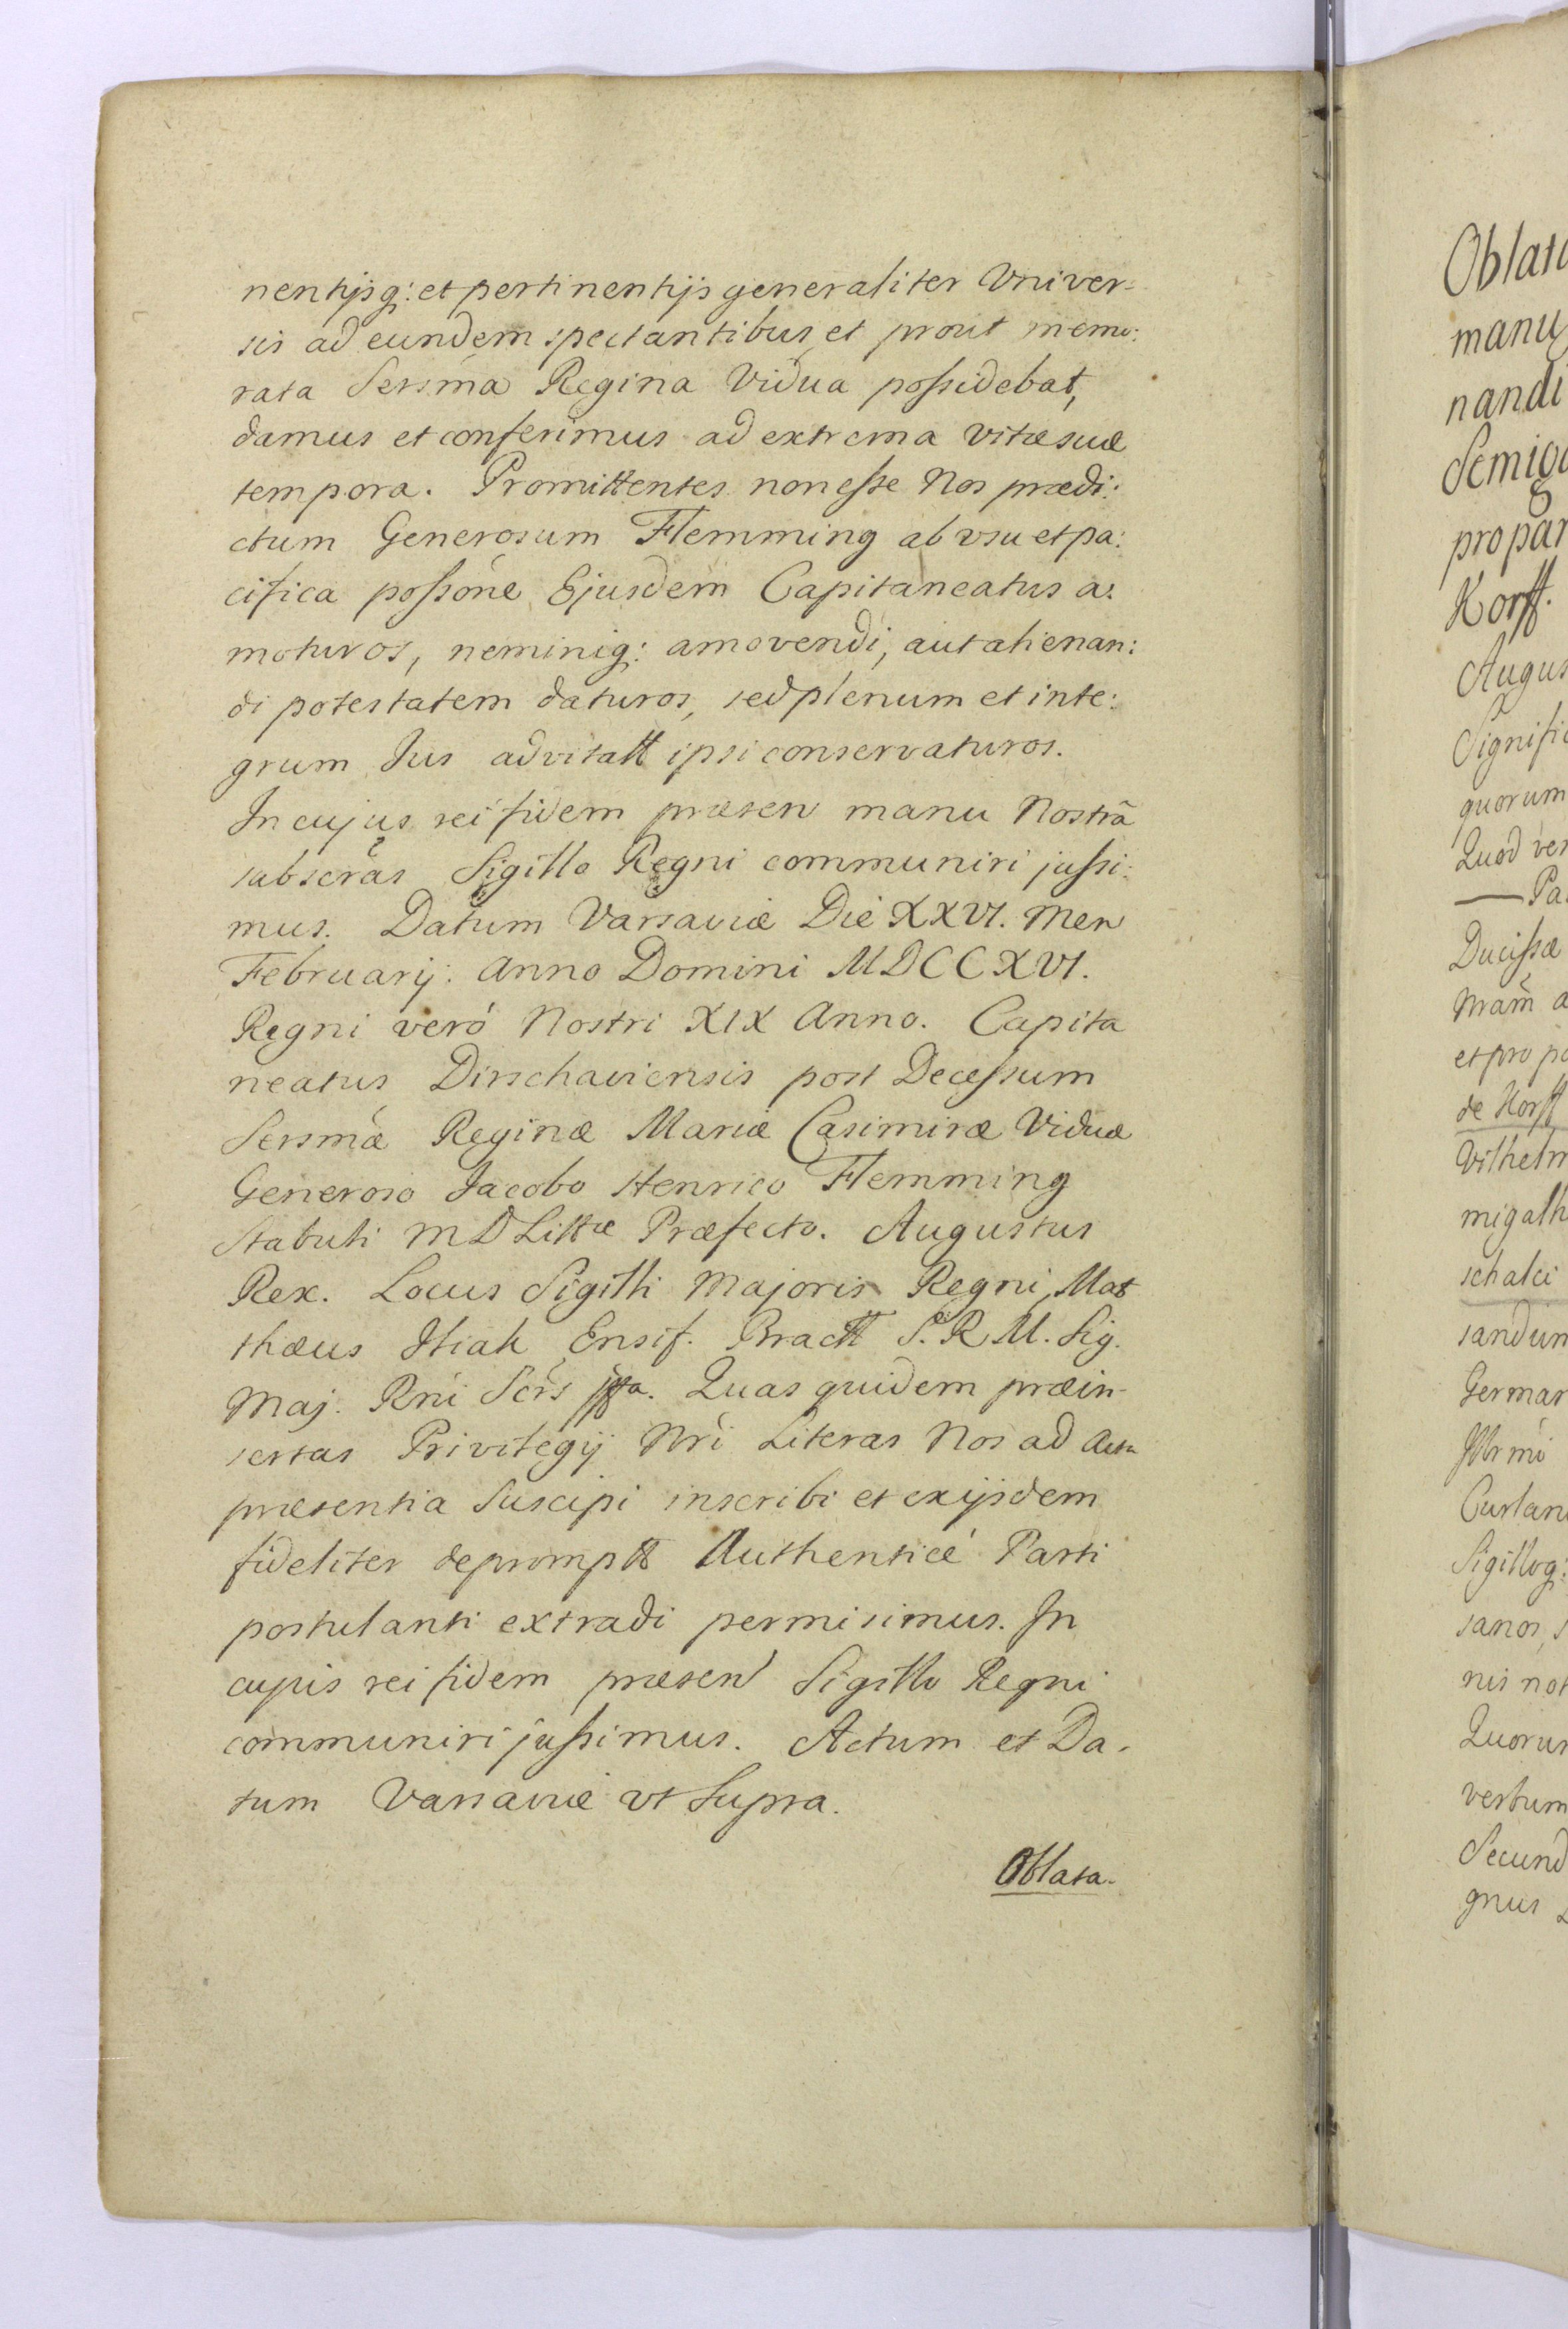 nentijsq: et pertinentijs generaliter Vniver-
sis ad eundem spectantibus et prout memo:
rata Sersma Regina Vidua possidebat,
damus et conferimus ad extrema vitæ suæ
tempora. Promittentes non esse Nos prædi:
ctum Generosum Flemming ab vsu et pa:
cifica possone Ejusdem Capitaneatus a:
moturos, neminiq: amovendi, aut alienan:
di potestatem daturos, sed plenum et inte:
grum Jus ad vitatt ipsi conservaturos.
In cujus rei fidem præsen manu Nostrã
subscras Sigillo Regni communiri jussi:
mus. Datum Varsaviæ Die XXVI. Men
Februarij. Anno Domini MDCCXVI.
Regni veró Nostri XIX Anno. Capita
neatus Dirschaviensis post Decessum
Sersmæ Reginæ Mariæ Casimiræ Viduæ
Generoso Jacobo Henrico Flemming
Stabuli M D Littæ Præfecto. Augustus
Rex. Locus Sigilli Majoris Regni, Mat
thæus Ensif. Bractt S. R M. Sig.
Maj. Rni Scrs Quas quidem præin-
sertas Privilegij Nri Literas Nos ad Acta
præsentia Suscipi inscribi et exijsdem
fideliter deprompt Authenticé Parti
postulanti extradi permisimus. In
cujus rei fidem præsen Sigillo Regni
communiri jussimus. Actum et Da-
tum Varsaviæ vt Supra.
Oblata.
Oblat
manu
nandi
Semig
propar
Korff.
Augus
Signifi
quorum
Quod ver
— Pa
Ducissæ
Mram a
et pro po
de Korff
Vilhelm
migall
schalci
sandum
German
Curlan
Sigilloq:
sanos, s
nis not
Quorum
verbum
Secund
gnus